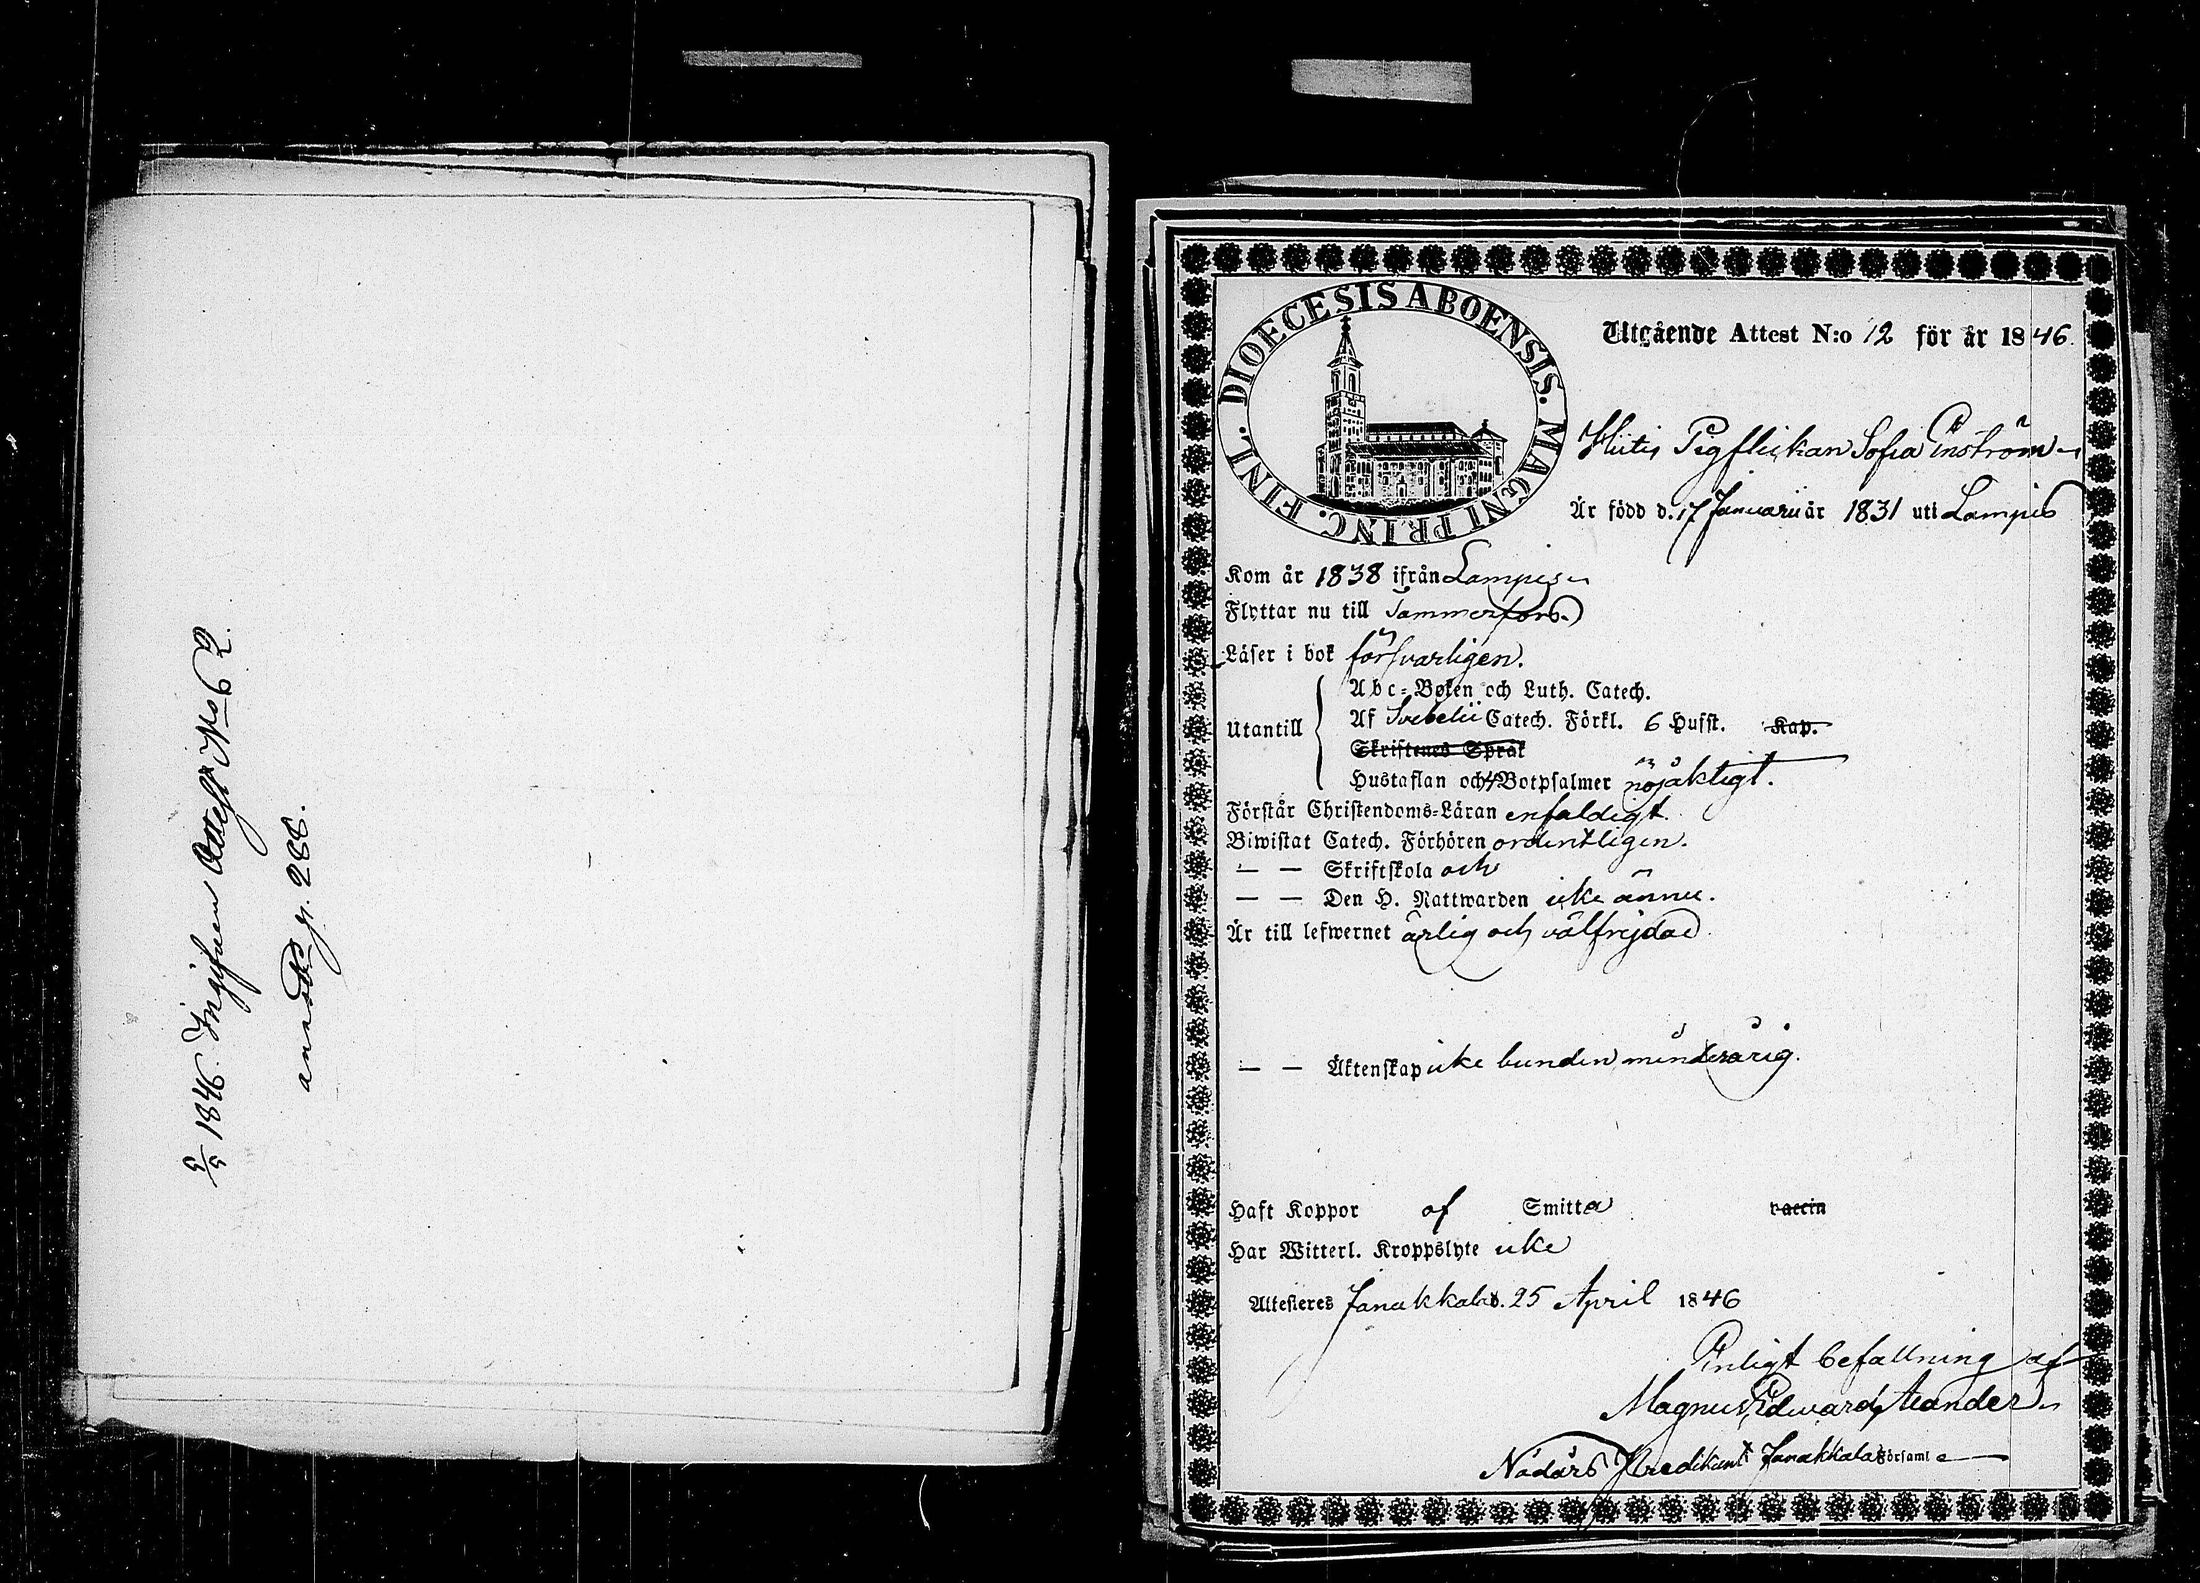 5/5 1846. Ingifven Attest No 62.
pag. 288.
DIOECESIS ABOENSIS. MAGNI PRINC. FINL.
Utgående Attest N:o 12 för år 1846.
Hiitis Pigflickan Sofia Enström
Är född d. 17 Januarii år 1831 uti Lampis
Kom år 1838 ifrån Lampis
Flyttar nu till Tammerfors.
Läser i bok försvarligen.
Utantill
Abc-Boken och Luth. Catech.
Af Svebelii Catech. Förkl. 6 Hufst. Kap.
Skriftenes Språk
Hustaflan och 4 Botpsalmer nöjaktigt.
Förstår Christendoms-Läran enfaldigt.
Biwistat Catech. Förhören ordentligen.
— — Skriftskola och
— — Den H. Nattwarden icke ännu.
Är till lefwernet ärlig och välfrejdad
— — Äktenskap icke bunden, minderårig.
Haft Koppor af Smitta vaccin
Har Witterl. Kroppslyte icke
Attesteres Janakkala d. 25 April 1846
Enligt befallning af
Magnus Edward Alander
Nådårs Predikant i Janakkala Församl